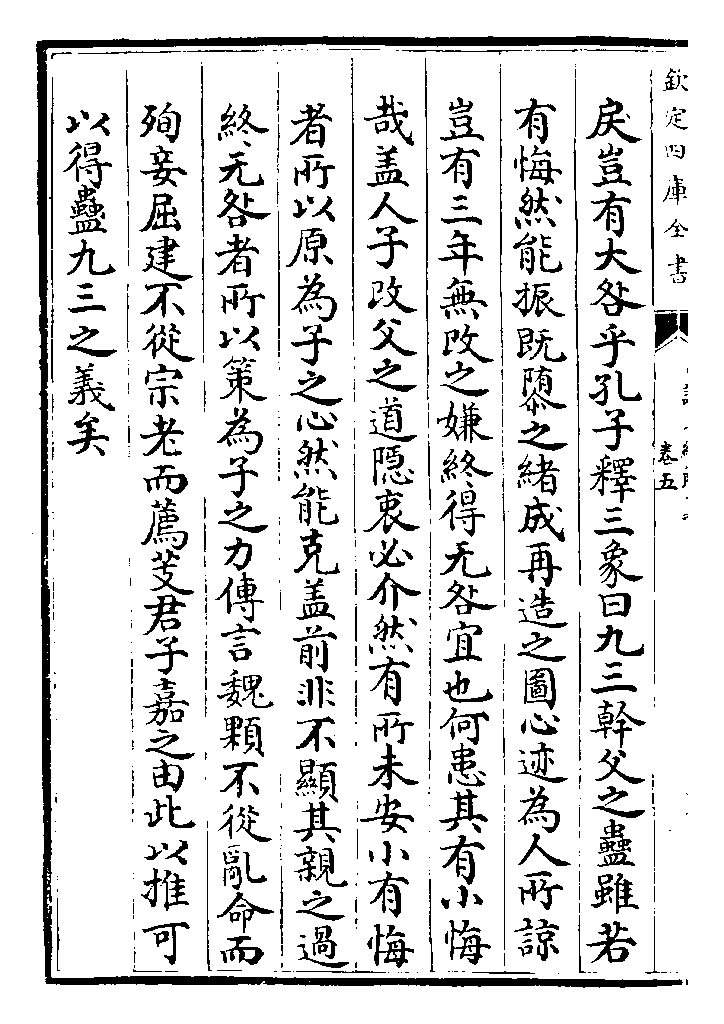 欽定四庫全書
卷五
戾豈有大咎乎孔子釋三象曰九三幹父之蠱雖若
有悔然能振既隳之緒成再造之圖心迹為人所諒
豈有三年無改之嫌終得无咎宜也何患其有小悔
哉盖人子改父之道隠衷必介然有所未安小有悔
者所以原為子之心然能克盖前非不顯其親之過
終无咎者所以策為子之力傳言魏顆不從亂命而
殉妾屈建不從宗老而薦芰君子嘉之由此以推可
以得蠱九三之義矣